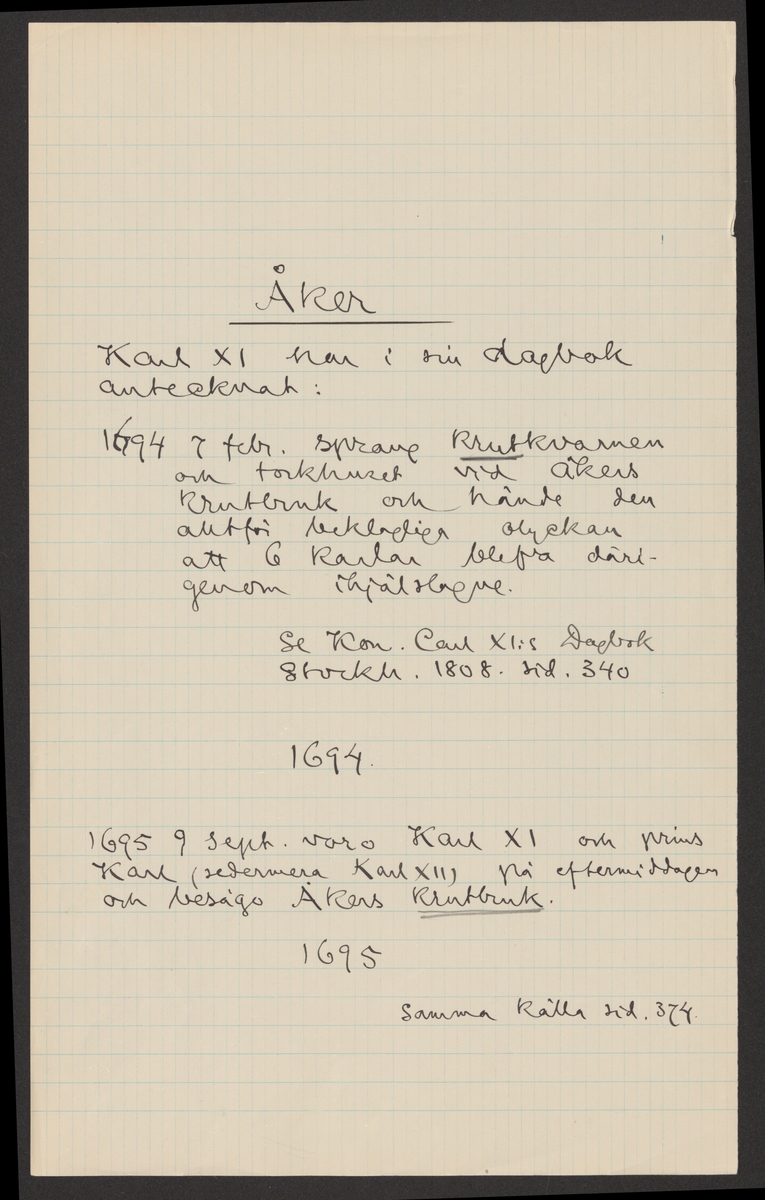 Åker
Karl XI har i sin dagbok
antecknat:
1694 7 febr. sprang krutkvarnen
och torkhuset vid Åkers
krutbruk och hände den
alltför beklagliga olyckan
att 6 karlar blefva däri-
genom ihjälslagne.
Se Kon. Carl XI:s Dagbok
Stockh. 1808. sid. 340
1694.
1695 9 Sept. voro Karl XI och prins
Karl (sedermera Karl XII) på eftermiddagen
och besågo Åkers krutbruk.
1695
Samma källa sid. 374.